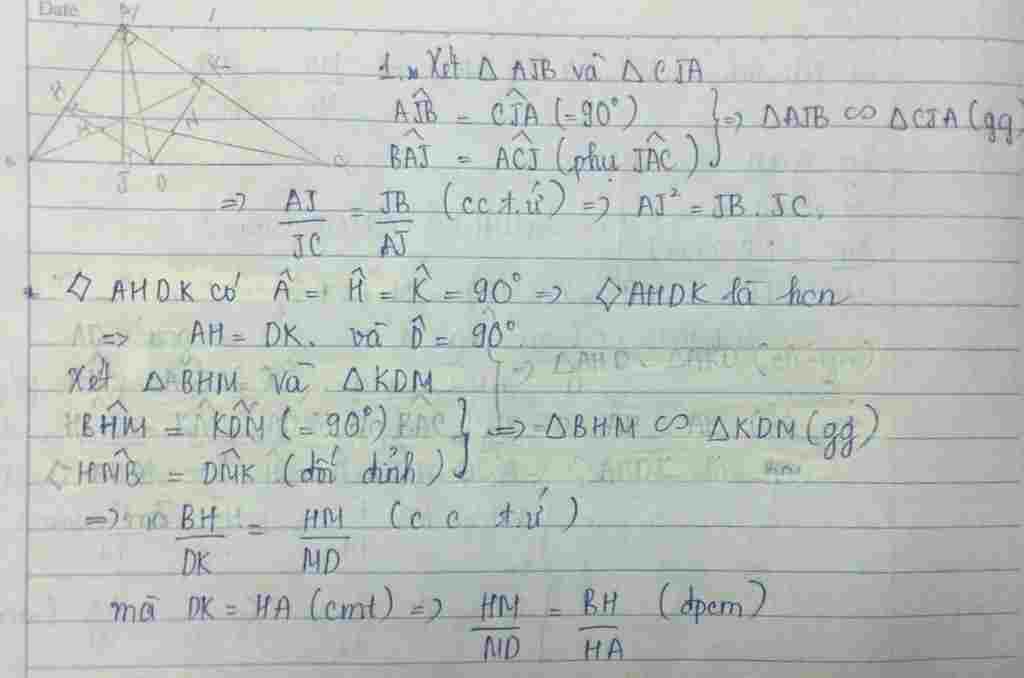 Date
1. Xét Δ AJB và Δ CJA
AĴB = CĴA (=90°)
BÂJ = AĈJ (phụ JÂC)
} => ΔAJB ∽ ΔCJA (gg)
=> AJ/JC = JB/AJ (cc t.ứ) => AJ² = JB . JC.
◇ AHDK có Â = Ĥ = K̂ = 90° => ◇AHDK là hcn
=> AH = DK. và D̂ = 90°
Xét ΔBHM và ΔKDM
BĤM = KD̂M (= 90°)
HM̂B = DM̂K (đối đỉnh)
} => ΔBHM ∽ ΔKDM (gg)
=> BH/DK = HM/MD (c c t.ứ)
mà DK = HA (cmt) => HM/MD = BH/HA (đpcm)